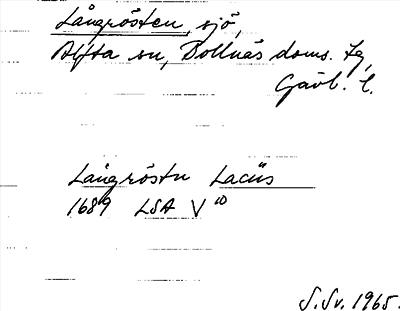 Långrösten, sjö,
Alfta sn, Bollnäs doms. tg,
Gävl. l.
Långröstn Lacus
1689 LSA V 10
S.Sv. 1965.